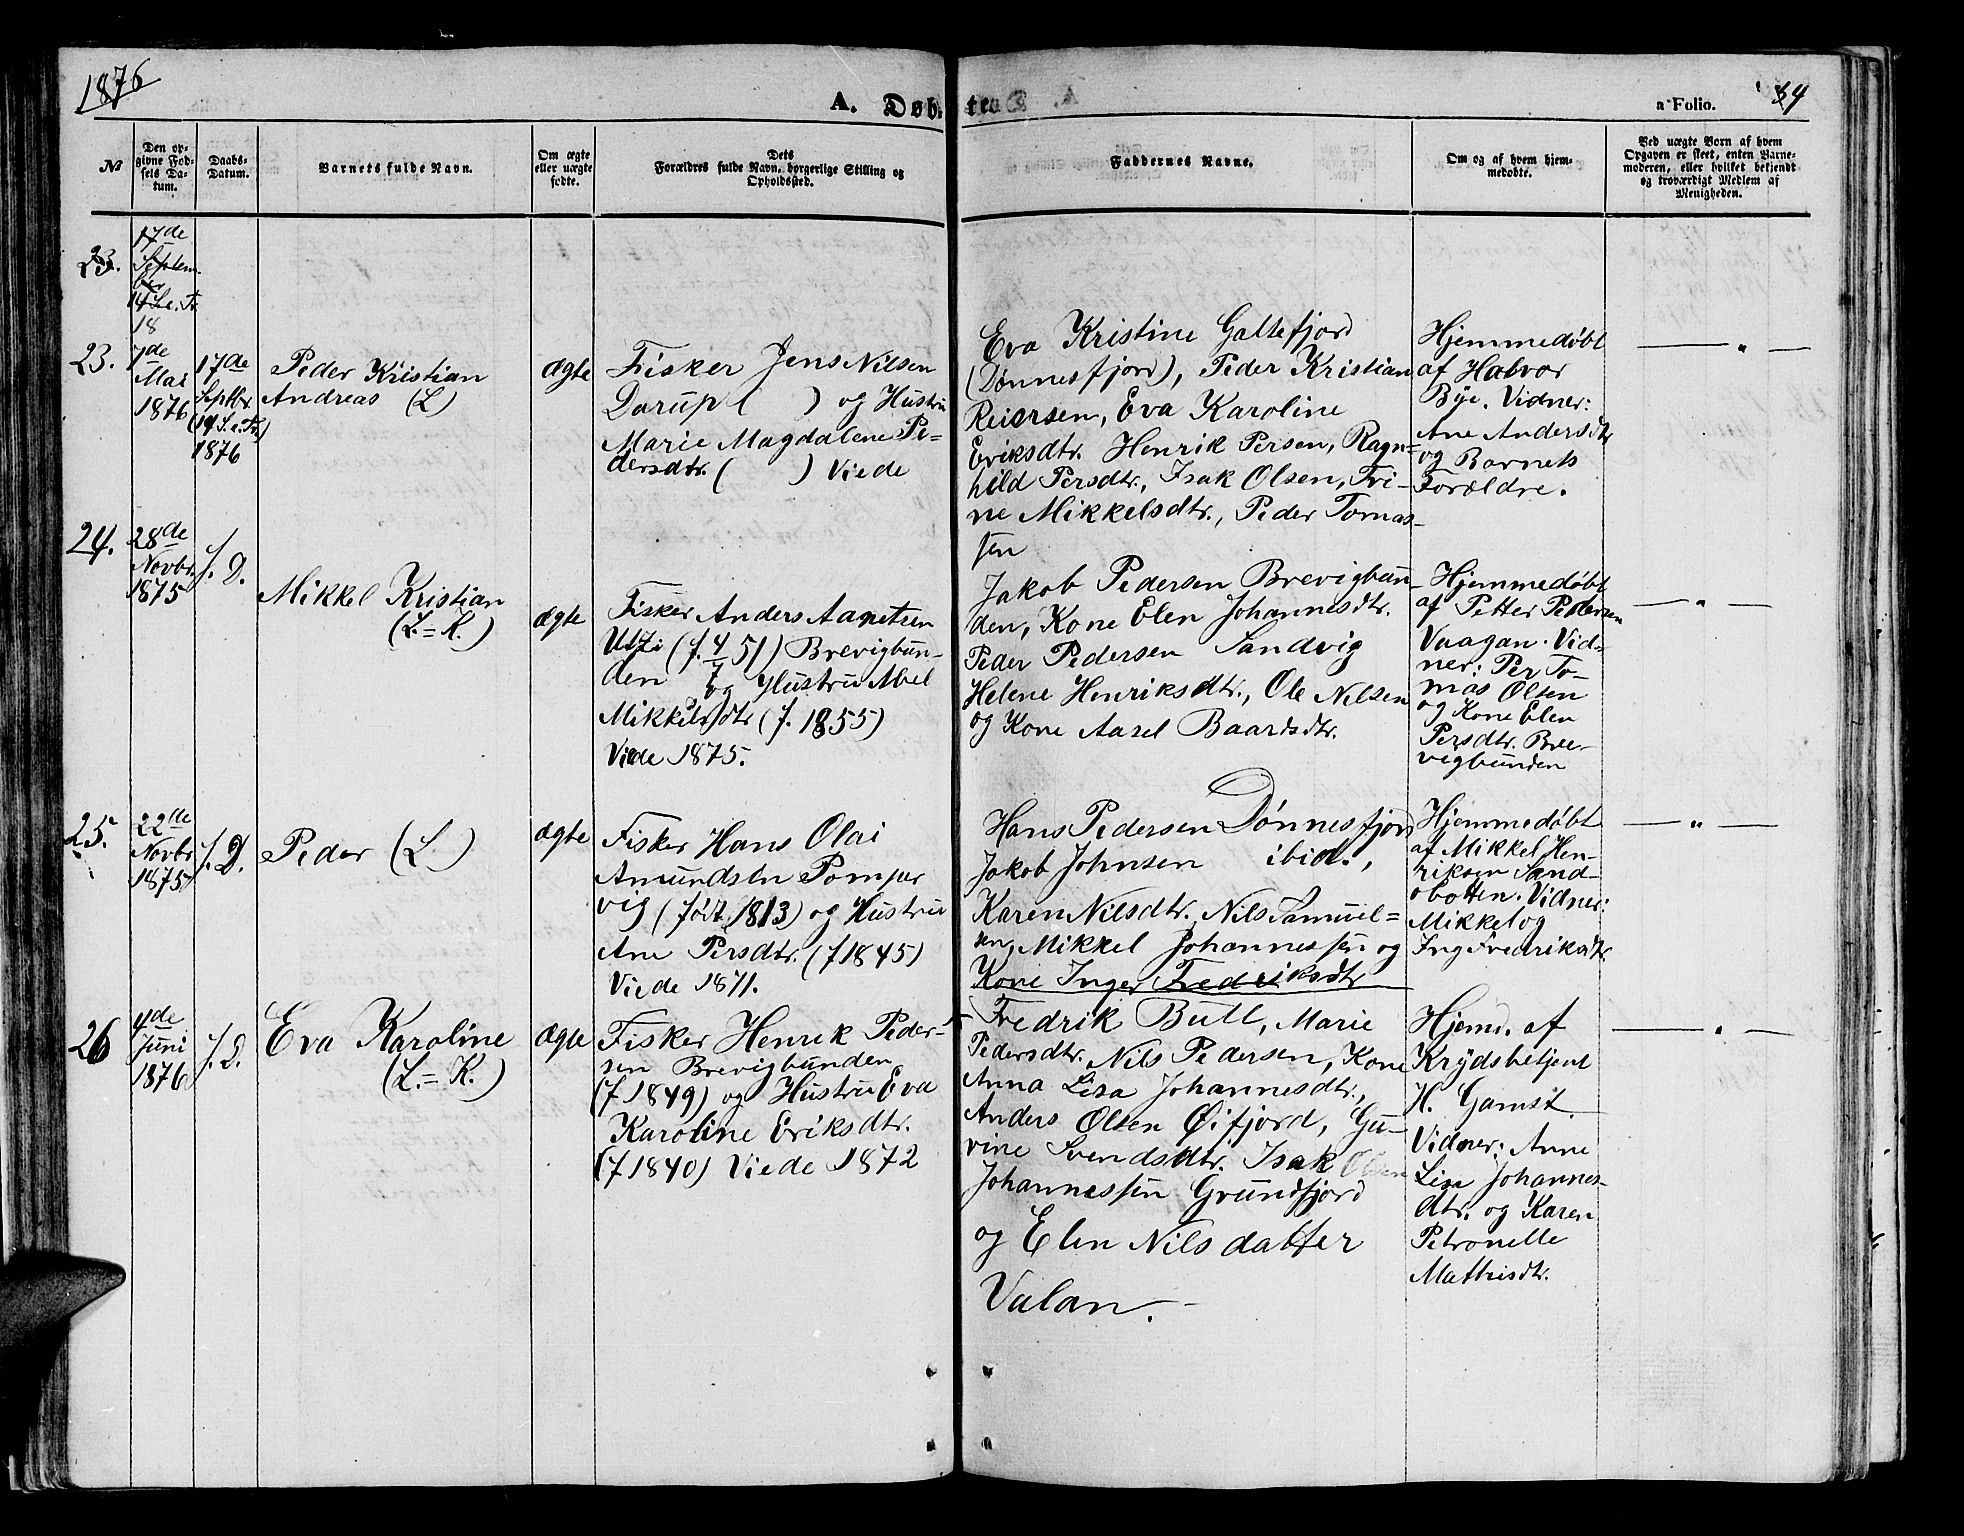 1876
A. Døb
te.
a Folio.
34
№
Den op-
givne Fød-
sels Da-
tum.
Daabs-
Datum.
Barnets fulde Navn.
Om ægte
eller uægte
fødte.
Dets
Forældres fulde Navn, borgerlige Stilling og
Opholdssted.
Faddernes Navne.
Om og af hvem hjem-
medøbte.
Ved uægte Børn af hvem
Opgaven er skeet, enten Barne-
moderen, eller hvilket bekjendt
og troværdigt Medlem af
Menigheden.
23.
17de
Septem-
ber
14 S. e. Tr.
18
23.
7de
Mai
1876
17de
Septbr.
(14 S. e. Tr.)
1876
Peder Kristian
Andreas (L)
ægte
Fisker Jens Nilsen
Darup ( ) og Hustru
Marie Magdalene Pe-
dersdtr. ( ) Viede
Eva Kristine Galtefjord
(Dønnesfjord), Peder Kristian
Reiersen, Eva Karoline
Eriksdtr. Henrik Persen, Ragn-
hild Persdtr., Isak Olsen, Tri-
ne Mikkelsdtr., Peder Tomas-
sen
Hjemmedøbt
af Halvor
Bye. Vidner:
Ane Andersdtr
og Barnets
Forældre.
24.
28de
Novbr.
1875
s. D.
Mikkel Kristian
(L. = K.)
ægte
Fisker Anders Aanetsen
Utzi (f. 4/7 51) Brevigbun-
den og Hustru Abel
Mikkelsdtr (f. 1855)
Viede 1875.
Jakob Pedersen Brevigbun-
den, Kone Elen Johannesdtr.
Peder Pedersen Sandvig
Helene Henriksdtr., Ole Nilsen
og Kone Aasel Baardsdtr.
Hjemmedøbt
af Petter Pedersen
Vaagan. Vid-
ner: Per To-
mas Olsen
og Kone Elen
Persdtr. Bre-
vigbunden
25.
22de
Novbr
1875
s. D.
Peder (L)
ægte
Fisker Hans Olai
Amundsen Pompar
vig (født 1813) og Hustru
Ane Persdtr. (f 1845)
Viede 1871.
Hans Pedersen Dønnesfjord
Jakob Johnsen ibid.,
Karen Nilsdtr., Nils Samuel=
sen, Mikkel Johannessen og
Kone Inger Fredriksdtr
Hjemmedøbt
af Mikkel Hen-
riksen Sand-
obotten. Vidner:
Mikkel og
Ing Fredriksdtr
26
4de
Juni
1876
s. D.
Eva Karoline
(L. = K.)
ægte
Fisker Henrik Peder-
sen Brevigbunden
(f 1849) og Hustru Eva
Karoline Eriksdtr.
(f 1840) Viede 1872
Fredrik Bull, Marie
Pedersdtr. Nils Pedersen, Kone
Anna Lisa Johannesdtr.,
Anders Olsen Øifjord, Gu-
rine Svendsdtr. Isak Olsen
Johannessen Grundfjord
og Elen Nilsdatter
Valan.
Hjemd. af
Krydsbetjent
H. Gamst.
Vidner: Anne
Lisa Johannes-
dtr. og Karen
Petronelle
Mathisdtr.